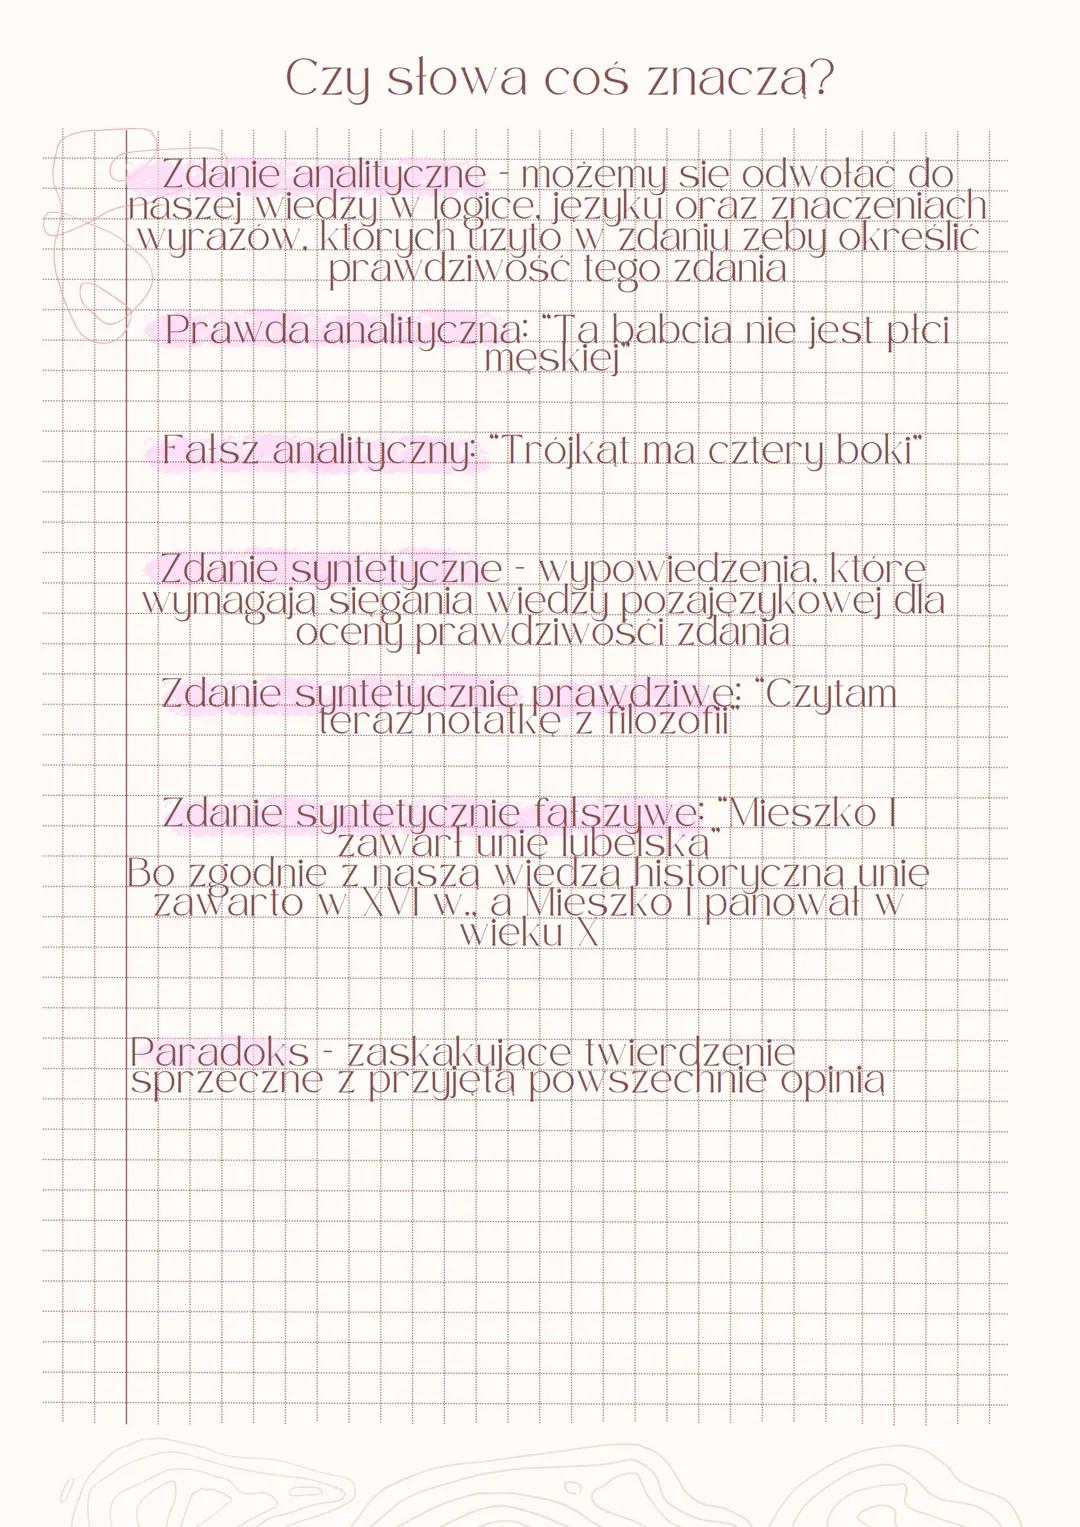 Czy słowa coś znaczą?
Zdanie analityczne - możemy się odwołać do
naszej wiedzy w logice, języku oraz znaczeniach
wyrazów, których użyto w zdaniu żeby określić
prawdziwość tego zdania
Prawda analityczna: "Ta babcia nie jest płci
męskiej"
Fałsz analityczny: "Trójkąt ma cztery boki"
Zdanie syntetyczne - wypowiedzenia, które
wymagają sięgania wiedzy pozajęzykowej dla
oceny prawdziwości zdania
Zdanie syntetycznie prawdziwe: "Czytam
teraz notatkę z filozofii"
Zdanie syntetycznie fałszywe: "Mieszko I
zawarł unię lubelską"
Bo zgodnie z naszą wiedzą historyczną unię
zawarto w XVI w., a Mieszko I panował w
wieku X
Paradoks - zaskakujące twierdzenie
sprzeczne z przyjętą powszechnie opinią